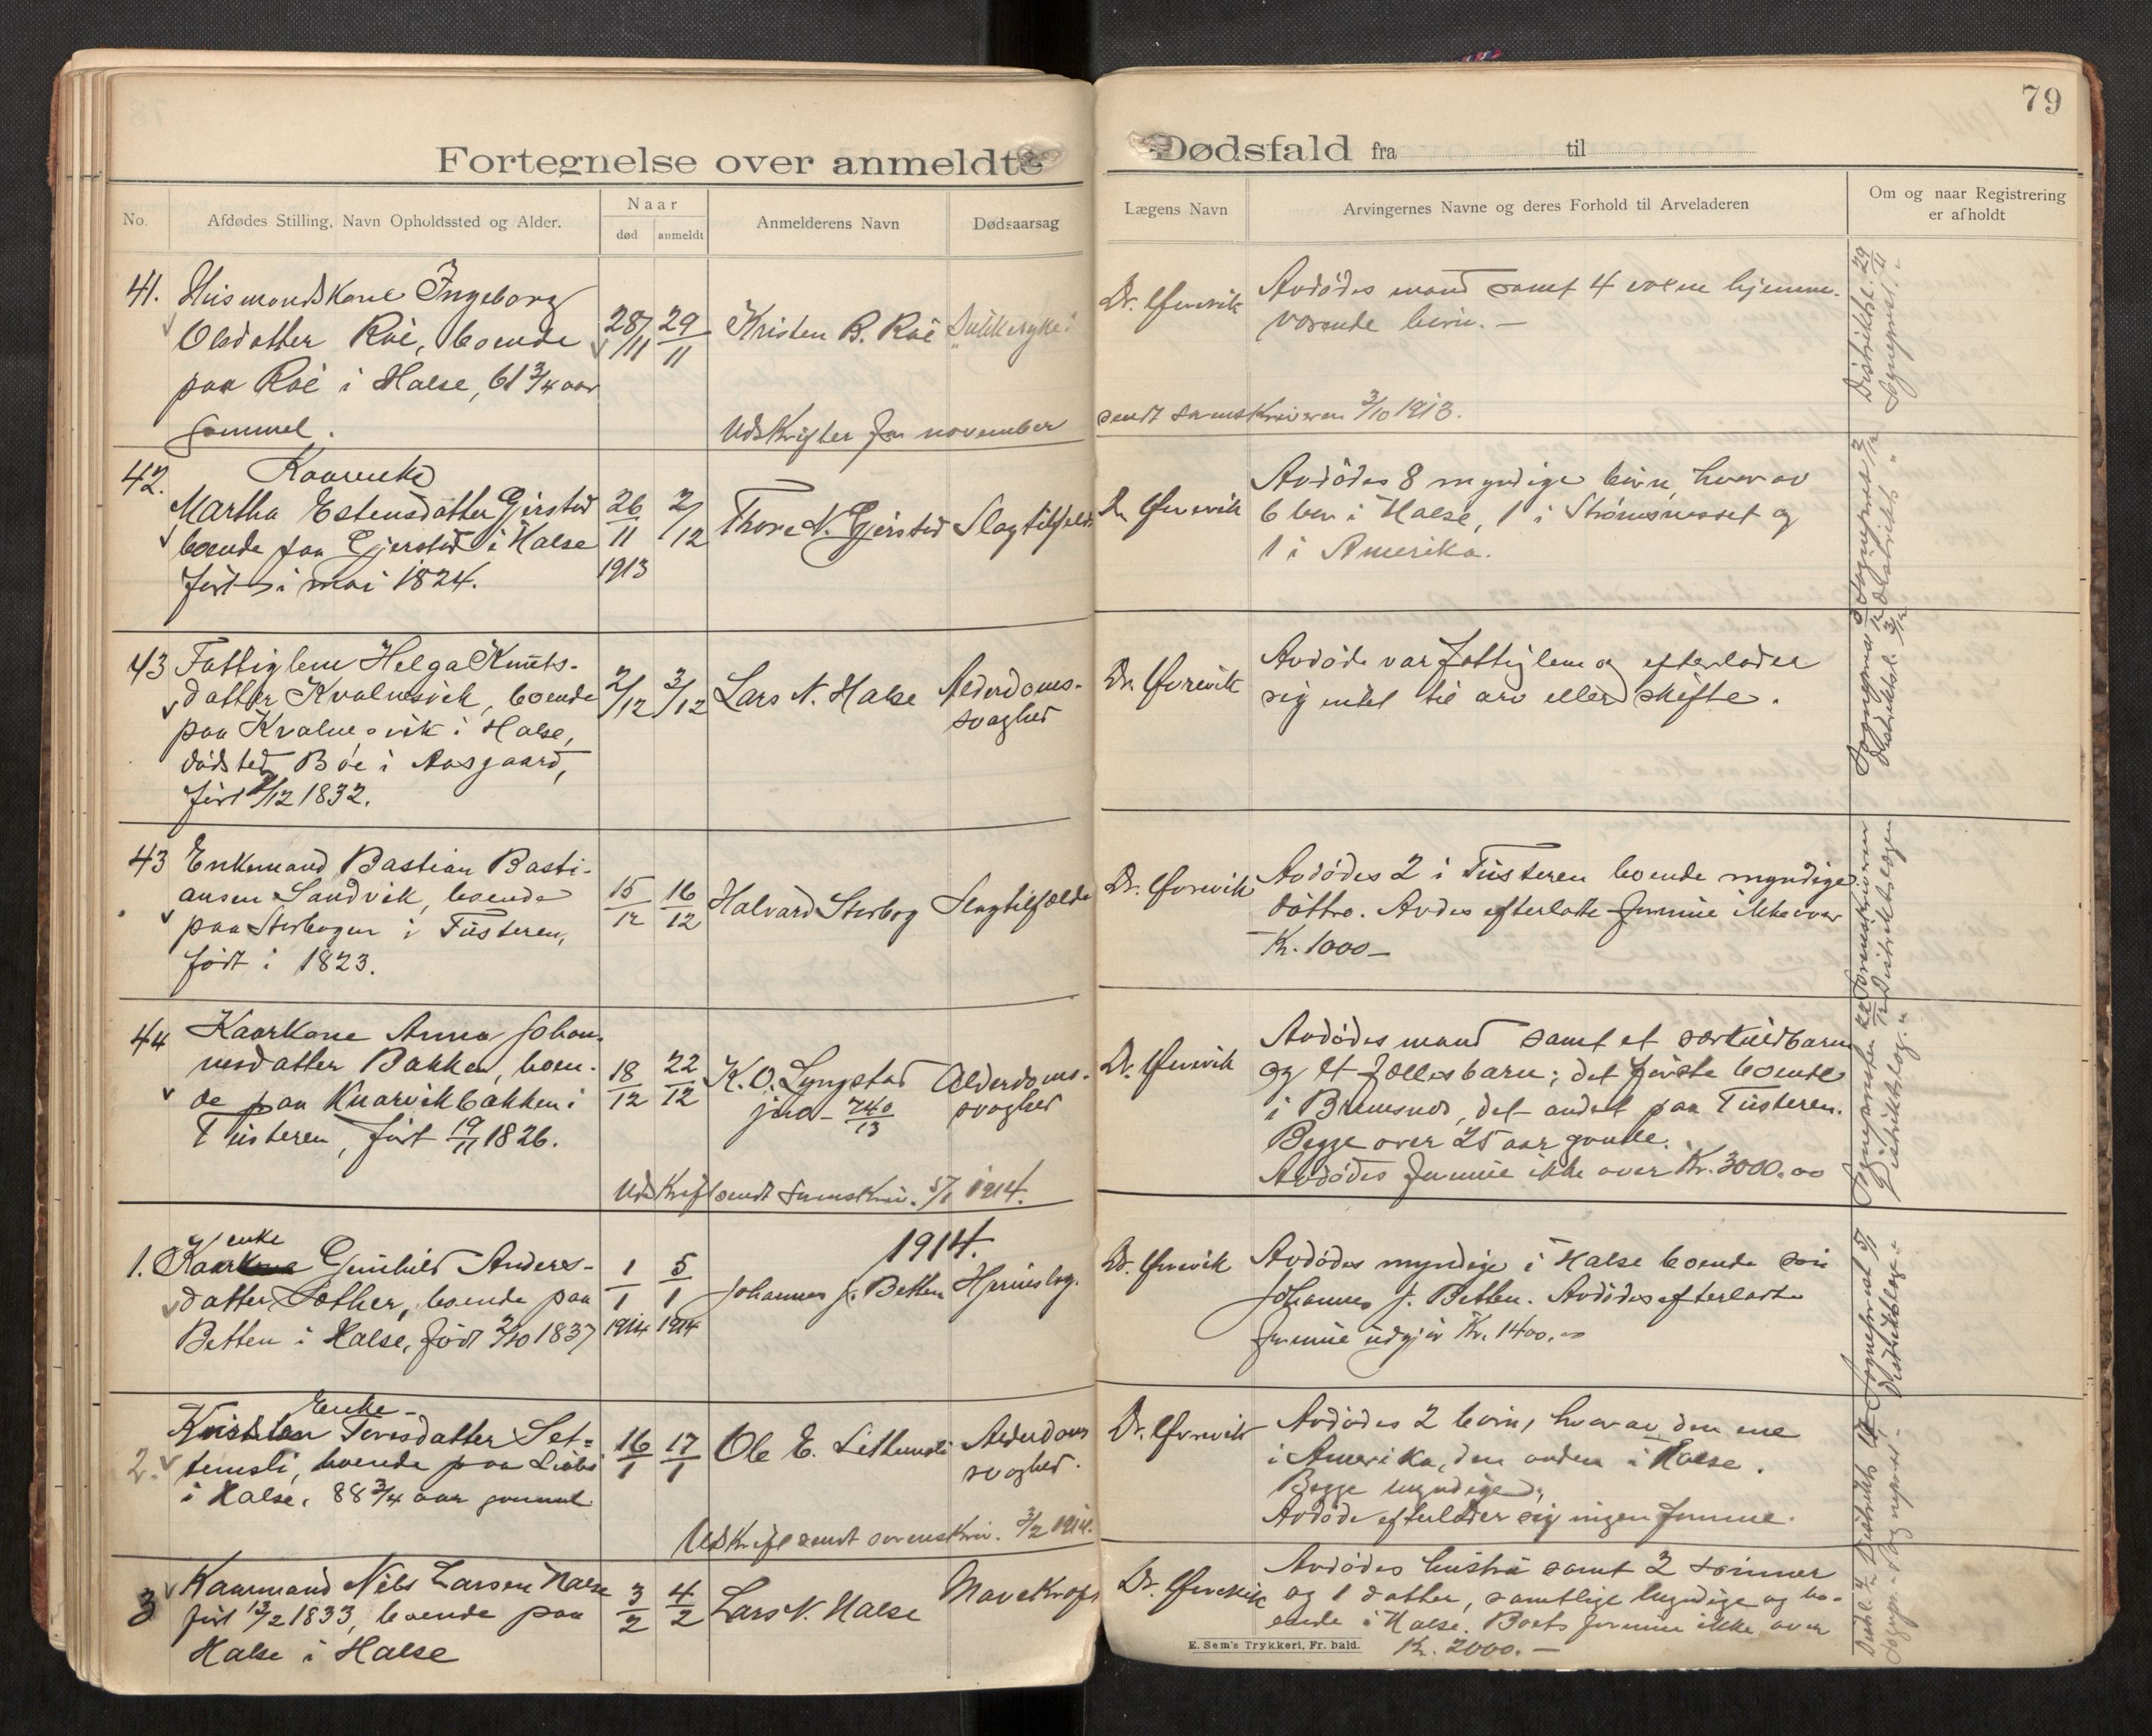 79
Fortegnelse over anmeldte Dødsfald fra til
No.
Afdødes Stilling, Navn Opholdssted og Alder.
Naar
død
anmeldt
Anmelderens Navn
Dødsaarsag
Lægens Navn
Arvingernes Navne og deres Forhold til Arveladeren
Om og naar Registrering
er afholdt
41. Husmandskone Ingeborg
Olsdatter Roë, boende
paa Roë i Halse, 61 3/4 aar
gammel.
28/11
29/11
Kristen B. Roë
Udskrifter for november
Dr. Øvrevik
Avdødes mand samt 4 voxne hjemme-
værende børn. —
sendt sorenskriveren 3/10 1913.
Distriktsl. 29/11
Sogneprest. "
42.
Kaarenke
Martha Estensdatter Gjersted
boende paa Gjersted i Halse
født i mai 1824.
26/11
1913
2/12
Thore N. Gjersted
Slagtilfælde
Dr. Øvrevik
Avdødes 8 myndige børn, hvorav
6 bor i Halse, 1 i Strømsnesset og
1 i Amerika.
43 Fattiglem Helga Knuts-
datter Kvalnesvik, boende
paa Kvalnesvik i Halse,
dødsted Böe i Aasgaard,
født 2/12 1832.
2/12
3/12
Lars N. Halse
Alderdoms-
svaghed
Dr. Øvrevik
Avdøde var fattiglem og efterlader
sig intet til arv eller skifte.
43 Enkemand Bastian Basti-
ansen Sandvik, boende
paa Storbogen i Tusteren,
født i 1823.
15/12
16/12
Halvard Storbog
Slagtilfælde
Dr. Øvrevik
Avdødes 2 i Tusteren boende myndige
døttre. Avdødes efterlatte formue ikke over
Kr. 1000 —
44 Kaarkone Anna Johan-
nesdatter Bakken, boen-
de paa Knarvikbakken i
Tusteren, født 19/11 1826.
18/12
22/12
K. O. Lyngstad
jno - 740/13
Alderdoms-
svaghed
Udskrift sendt sorenskriv. 5/1 1914.
Dr. Øvrevik
Avdødes mand samt et særkuldbarn
og et fællesbarn; det første boende
i Bremsnes, det andet paa Tusteren.
Begge over 25 aar gamle.
Avdødes formue ikke over Kr. 3000.00
1914.
enke
1. Kaarkone Gunhild Anders-
datter Sother, boende paa
Betten i Halse, født 2/10 1837
1/1
1914
5/1
1914
Johannes J. Betten
Hjerneslag.
Dr. Øvrevik
Avdødes myndige i Halse boende søn
Johannes J. Betten. Avdødes efterladte
formue udgjør Kr. 1400.00
Sogneprest 5/1
Enke -
2. Toresdatter Set=
temsli, boende paa
i Halse, 88 3/4 aar gammel
16/1
17/1
Ole E. Settemsli
Alderdoms
svaghed.
Udskrift sendt sorenskriv. 3/2 1914.
Dr. Øvrevik
Avdødes 2 børn, hvorav den ene
i Amerika, den anden i Halse.
Begge myndige.
Avdøde efterlader sig ingen formue.
3 Kaarmand Nils Larsen Halse
født 13/2 1833, boende paa
Halse i Halse
3/2
4/2
Lars N. Halse
Mavekræft
Dr. Øvrevik
Avdødes hustru samt 2 sønner
og 1 datter, samtlige myndige og bo-
ende i Halse. Boets formue ikke over
Kr. 2000. —
E. Sem's Trykkeri, Fr. hald.